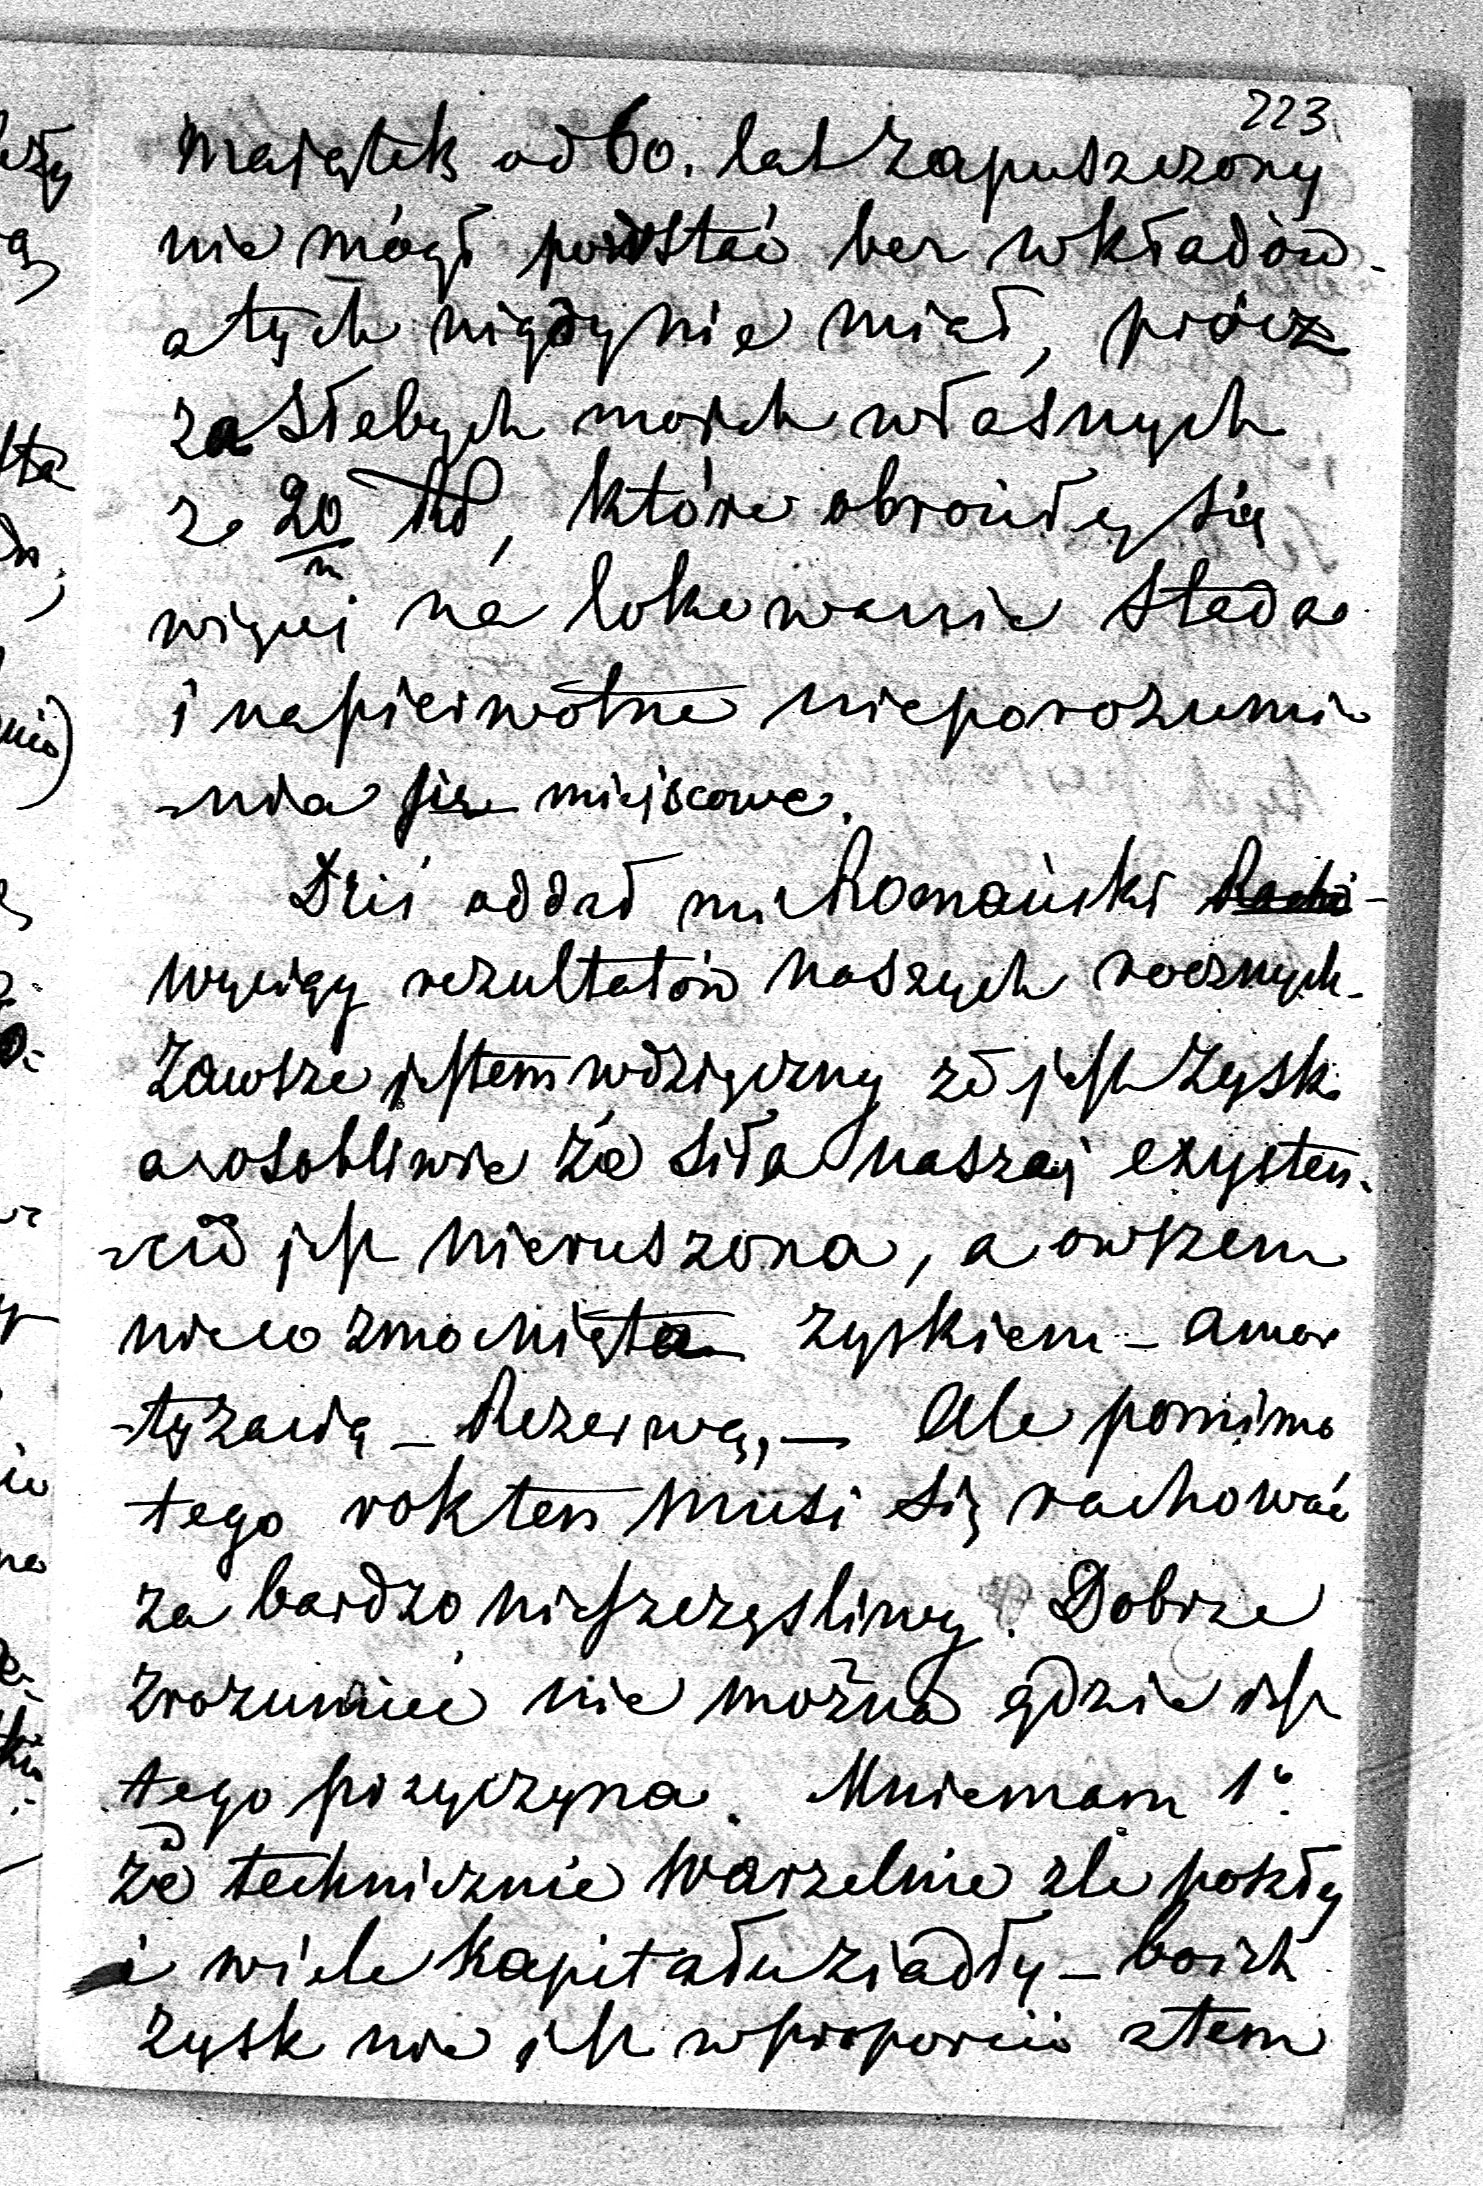 223
Majątek od 60. lat zapuszczony
nie mógł powstać bez wkładów
a tych nigdy nie miał, prócz
za słabych moich własnych
ze 20/m, które obróciły się
więcej na lokowanie stada
i na pierwotne nieporozumie
-nia miejscowe.
Dziś oddał mi Romański
wyciągy rezultatów naszych rocznych.
Zawsze jestem wdzięczny że jest zysk
a osobliwie że siła naszej exysten-
-cii jest nieruszona, a owszem
nieco zmocnięta zyskiem – amor
-tyzacią – Rezerwą, — Ale pomimo
tego rok ten musi się rachować
za bardzo nieszczęśliwy. Dobrze
zrozumieć nie można gdzie jest
tego przyczyna. Mniemam 1°.
że technicznie warzelnie źle poszły
i wiele kapitału ziadły – bo ich
zysk nie jest w proporcii z tem